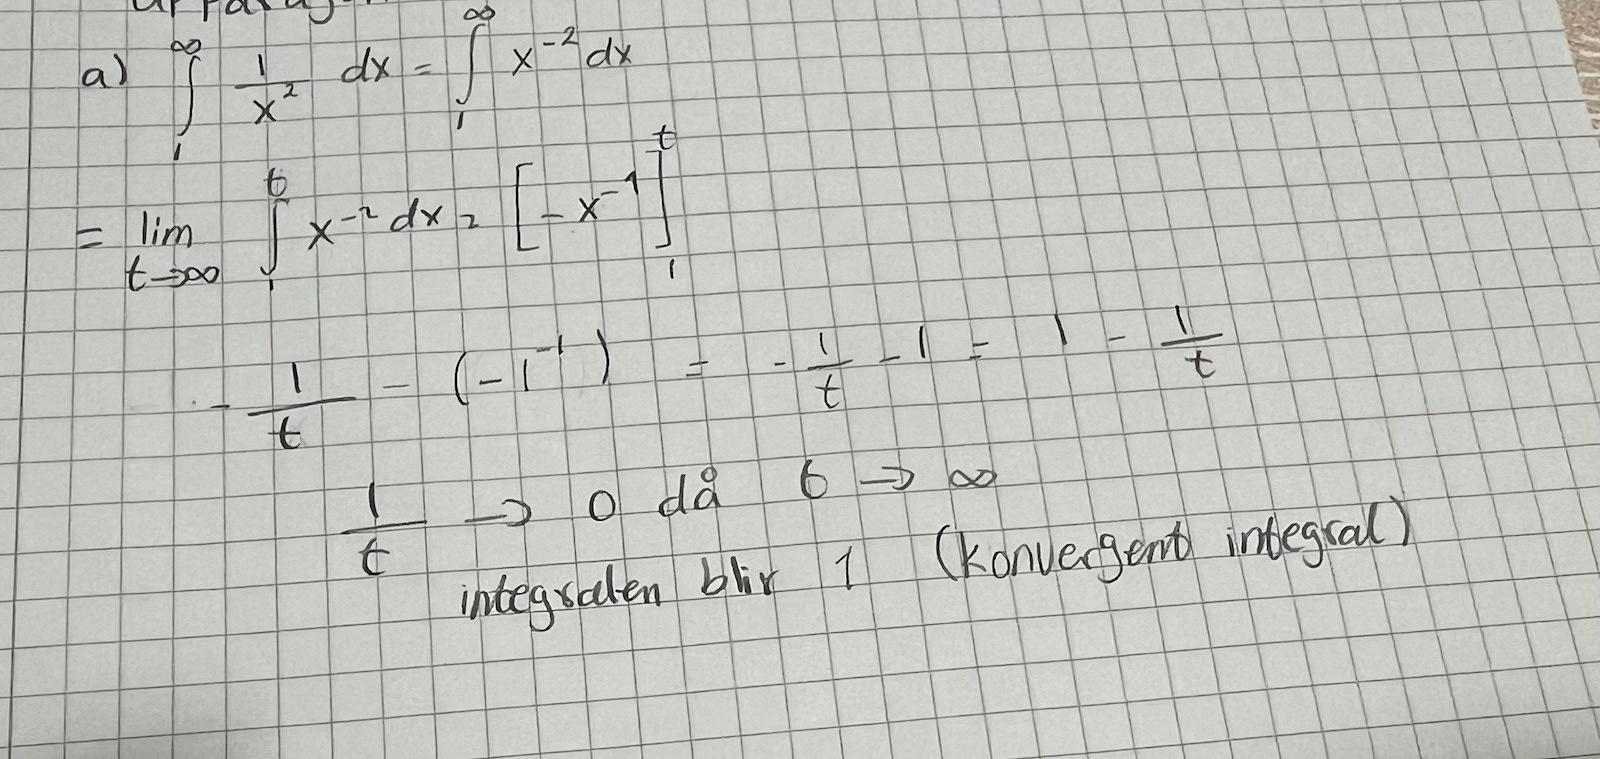 a) ∫₁^∞ 1/x² dx = ∫₁^∞ x⁻² dx
= lim t→∞ ∫₁^t x⁻² dx = [-x⁻¹]₁^t
- 1/t - (-1⁻¹) = - 1/t - 1 = 1 - 1/t
1/t → 0 då t → ∞
integralen blir 1 (konvergent integral)